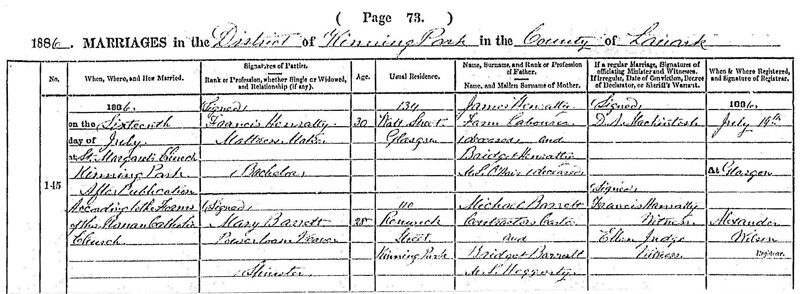 ( Page 73. )
1886. MARRIAGES in the District of Kinning Park in the County of Lanark
No.
When, Where, and How Married.
Signatures of Parties.
Rank or Profession, whether Single or Widowed, and Relationship (if any).
Age.
Usual Residence.
Name, Surname, and Rank or Profession of Father.
Name, and Maiden Surname of Mother.
If a regular Marriage, Signatures of officiating Minister and Witnesses. If irregular, Date of Conviction, Decree of Declarator, or Sheriff's Warrant.
When & Where Registered, and Signature of Registrar.
145
1886,
on the Sixteenth
day of July
at St. Margaret's Church
Kinning Park
After Publication
According to the Forms
of the Roman Catholic
Church
(Signed)
Francis Hanratty
Mattress Maker
Bachelor
(Signed)
Mary Barrett
Power loom Weaver
Spinster
30
28
134
Watt Street
Glasgow
110
Renwick
Street
Kinning Park
James Hanratty
Farm Labourer
(deceased) and
Bridget Hanratty
M.S. O'Hair (deceased)
Michael Barrett
Contractors Carter
and
Bridget Barrett
M.S. Heggarty
(Signed)
D. A. Mackintosh
(Signed)
Francis Hanratty
Witness
Ellen Judge
Witness
1886,
July 19th
At Glasgow
Alexander
Wilson
Registrar.